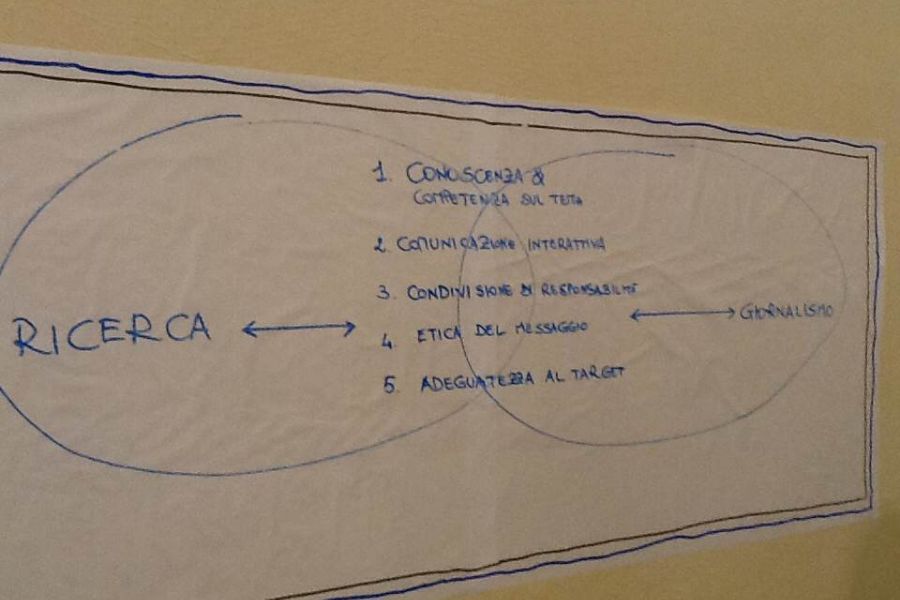 1. CONOSCENZA &
COMPETENZA SUL TEMA
2. COMUNICAZIONE INTERATTIVA
3. CONDIVISIONE DI RESPONSABILITÀ
4. ETICA DEL MESSAGGIO
5. ADEGUATEZZA AL TARGET
RICERCA
GIORNALISMO